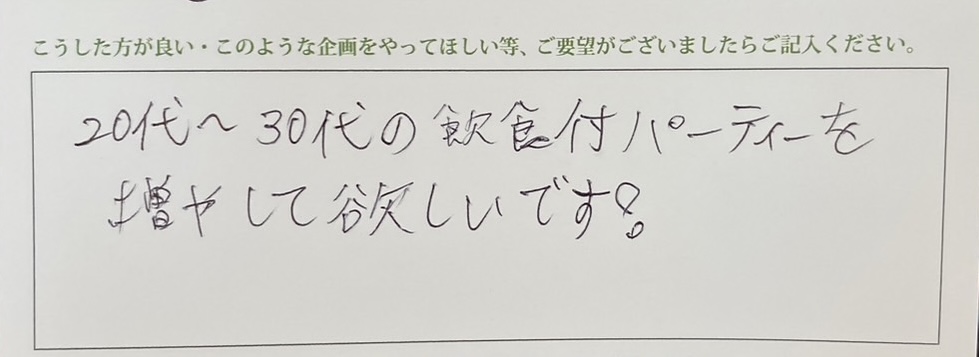 こうした方が良い・このような企画をやってほしい等、ご要望がございましたらご記入ください。
20代～30代の飲食付パーティーを
増やして欲しいです!